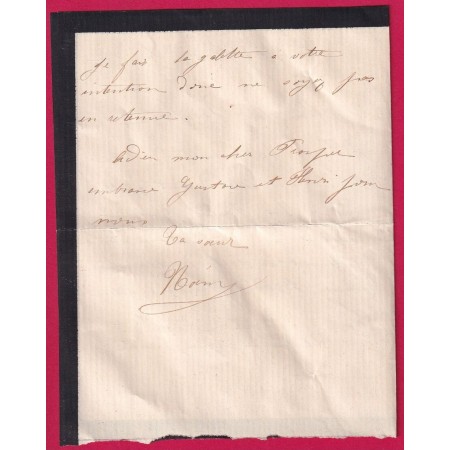 Je fais la galette à votre
intention donc ne soyez pas
en retenue.
Adieu mon cher Prosper
embrasse Gustave et Henri pour
nous
Ta sœur